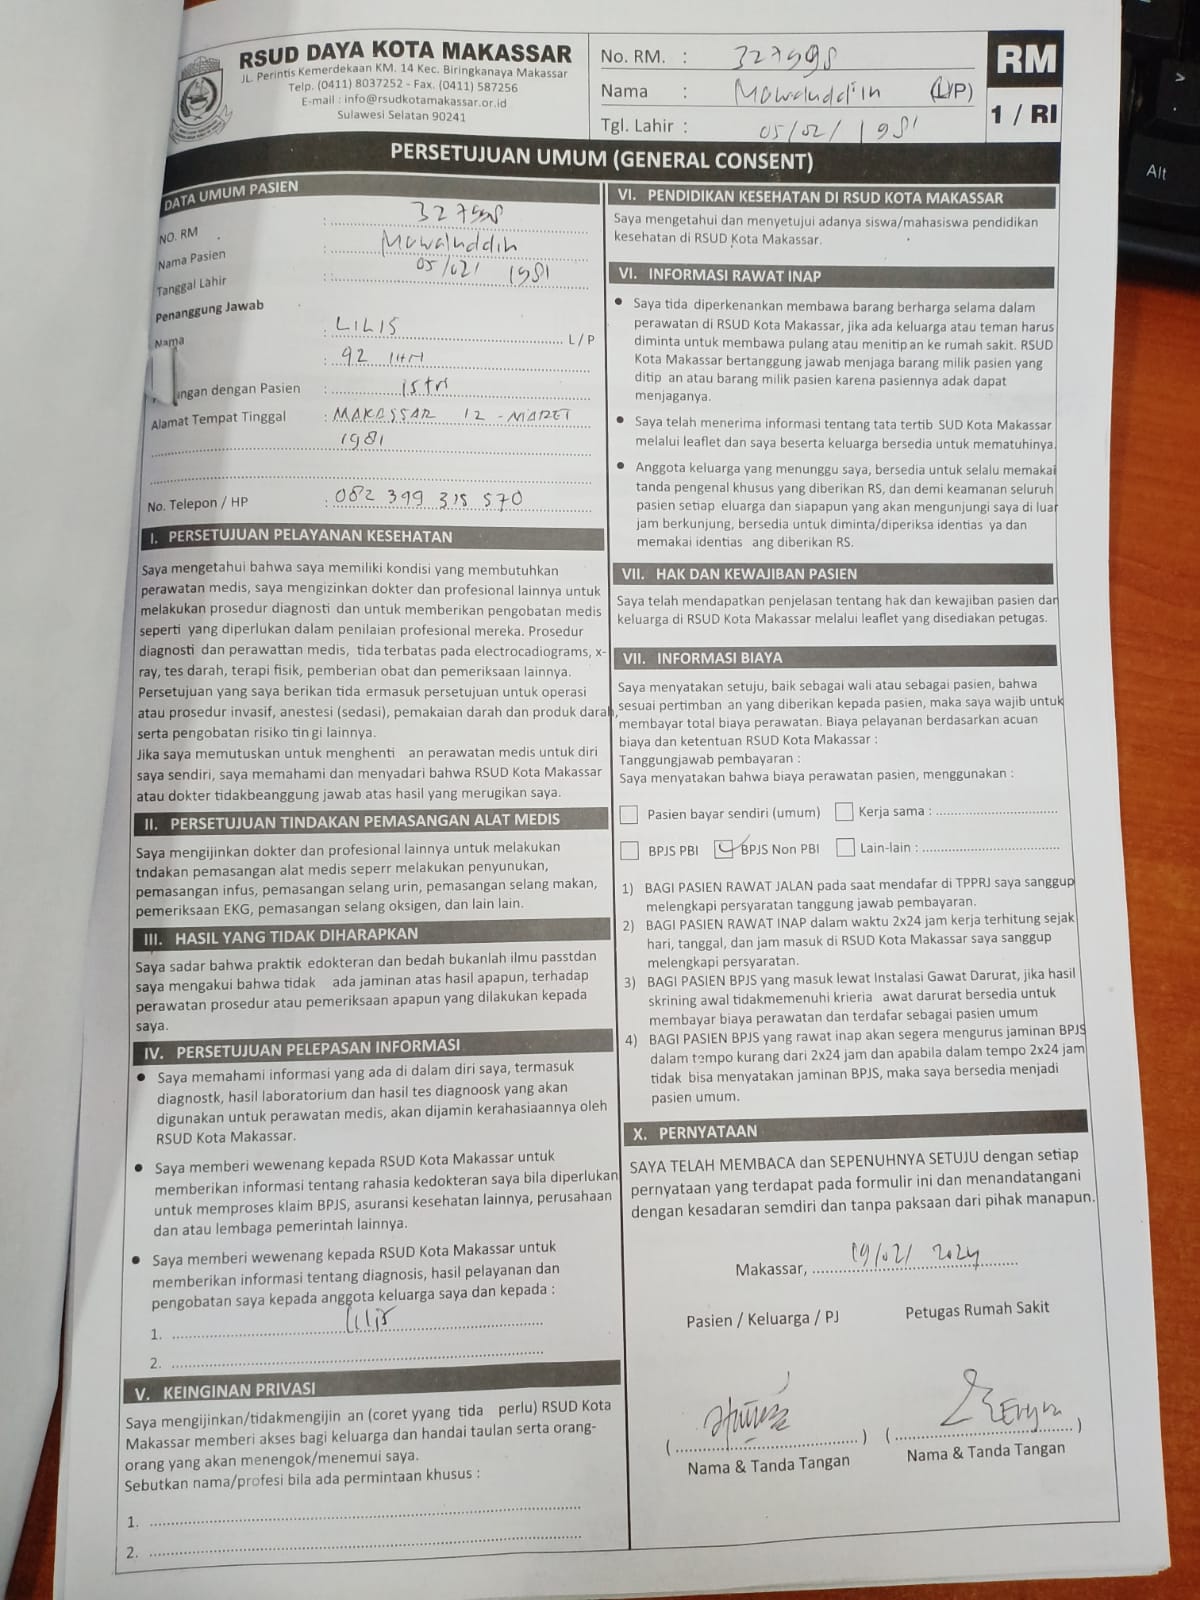 RSUD DAYA KOTA MAKASSAR
JL. Perintis Kemerdekaan KM. 14 Kec. Biringkanaya Makassar
Telp. (0411) 8037252 - Fax. (0411) 587256
E-mail : info@rsudkotamakassar.or.id
Sulawesi Selatan 90241
No. RM. :
Nama : (L/P)
Tgl. Lahir : 05/02/1981
RM
1 / RI
PERSETUJUAN UMUM (GENERAL CONSENT)
DATA UMUM PASIEN
NO. RM :
Nama Pasien :
Tanggal Lahir : 05/02/ 1981
Penanggung Jawab
Nama : LILIS L / P
: 42
ungan dengan Pasien : istri
Alamat Tempat Tinggal : MAKASSAR 12 - MARET
1981
No. Telepon / HP : 082 399 315 570
I. PERSETUJUAN PELAYANAN KESEHATAN
Saya mengetahui bahwa saya memiliki kondisi yang membutuhkan
perawatan medis, saya mengizinkan dokter dan profesional lainnya untuk
melakukan prosedur diagnosti dan untuk memberikan pengobatan medis
seperti yang diperlukan dalam penilaian profesional mereka. Prosedur
diagnosti dan perawattan medis, tida terbatas pada electrocadiograms, x-
ray, tes darah, terapi fisik, pemberian obat dan pemeriksaan lainnya.
Persetujuan yang saya berikan tida ermasuk persetujuan untuk operasi
atau prosedur invasif, anestesi (sedasi), pemakaian darah dan produk darah,
serta pengobatan risiko tin gi lainnya.
Jika saya memutuskan untuk menghenti an perawatan medis untuk diri
saya sendiri, saya memahami dan menyadari bahwa RSUD Kota Makassar
atau dokter tidakbeanggung jawab atas hasil yang merugikan saya.
II. PERSETUJUAN TINDAKAN PEMASANGAN ALAT MEDIS
Saya mengijinkan dokter dan profesional lainnya untuk melakukan
tndakan pemasangan alat medis seperr melakukan penyunukan,
pemasangan infus, pemasangan selang urin, pemasangan selang makan,
pemeriksaan EKG, pemasangan selang oksigen, dan lain lain.
III. HASIL YANG TIDAK DIHARAPKAN
Saya sadar bahwa praktik edokteran dan bedah bukanlah ilmu passtdan
saya mengakui bahwa tidak ada jaminan atas hasil apapun, terhadap
perawatan prosedur atau pemeriksaan apapun yang dilakukan kepada
saya.
IV. PERSETUJUAN PELEPASAN INFORMASI
• Saya memahami informasi yang ada di dalam diri saya, termasuk
diagnostk, hasil laboratorium dan hasil tes diagnoosk yang akan
digunakan untuk perawatan medis, akan dijamin kerahasiaannya oleh
RSUD Kota Makassar.
• Saya memberi wewenang kepada RSUD Kota Makassar untuk
memberikan informasi tentang rahasia kedokteran saya bila diperlukan
untuk memproses klaim BPJS, asuransi kesehatan lainnya, perusahaan
dan atau lembaga pemerintah lainnya.
• Saya memberi wewenang kepada RSUD Kota Makassar untuk
memberikan informasi tentang diagnosis, hasil pelayanan dan
pengobatan saya kepada anggota keluarga saya dan kepada :
1. Lilis
2.
V. KEINGINAN PRIVASI
Saya mengijinkan/tidakmengijin an (coret yyang tida perlu) RSUD Kota
Makassar memberi akses bagi keluarga dan handai taulan serta orang-
orang yang akan menengok/menemui saya.
Sebutkan nama/profesi bila ada permintaan khusus :
1.
2.
VI. PENDIDIKAN KESEHATAN DI RSUD KOTA MAKASSAR
Saya mengetahui dan menyetujui adanya siswa/mahasiswa pendidikan
kesehatan di RSUD Kota Makassar.
VI. INFORMASI RAWAT INAP
• Saya tida diperkenankan membawa barang berharga selama dalam
perawatan di RSUD Kota Makassar, jika ada keluarga atau teman harus
diminta untuk membawa pulang atau menitip an ke rumah sakit. RSUD
Kota Makassar bertanggung jawab menjaga barang milik pasien yang
ditip an atau barang milik pasien karena pasiennya adak dapat
menjaganya.
• Saya telah menerima informasi tentang tata tertib SUD Kota Makassar
melalui leaflet dan saya beserta keluarga bersedia untuk mematuhinya.
• Anggota keluarga yang menunggu saya, bersedia untuk selalu memakai
tanda pengenal khusus yang diberikan RS, dan demi keamanan seluruh
pasien setiap eluarga dan siapapun yang akan mengunjungi saya di luar
jam berkunjung, bersedia untuk diminta/diperiksa identias ya dan
memakai identias ang diberikan RS.
VII. HAK DAN KEWAJIBAN PASIEN
Saya telah mendapatkan penjelasan tentang hak dan kewajiban pasien dan
keluarga di RSUD Kota Makassar melalui leaflet yang disediakan petugas.
VII. INFORMASI BIAYA
Saya menyatakan setuju, baik sebagai wali atau sebagai pasien, bahwa
sesuai pertimban an yang diberikan kepada pasien, maka saya wajib untuk
membayar total biaya perawatan. Biaya pelayanan berdasarkan acuan
biaya dan ketentuan RSUD Kota Makassar :
Tanggungjawab pembayaran :
Saya menyatakan bahwa biaya perawatan pasien, menggunakan :
Pasien bayar sendiri (umum) Kerja sama :
BPJS PBI BPJS Non PBI Lain-lain :
1) BAGI PASIEN RAWAT JALAN pada saat mendafar di TPPRJ saya sanggup
melengkapi persyaratan tanggung jawab pembayaran.
2) BAGI PASIEN RAWAT INAP dalam waktu 2x24 jam kerja terhitung sejak
hari, tanggal, dan jam masuk di RSUD Kota Makassar saya sanggup
melengkapi persyaratan.
3) BAGI PASIEN BPJS yang masuk lewat Instalasi Gawat Darurat, jika hasil
skrining awal tidakmemenuhi krieria awat darurat bersedia untuk
membayar biaya perawatan dan terdafar sebagai pasien umum
4) BAGI PASIEN BPJS yang rawat inap akan segera mengurus jaminan BPJS
dalam tempo kurang dari 2x24 jam dan apabila dalam tempo 2x24 jam
tidak bisa menyatakan jaminan BPJS, maka saya bersedia menjadi
pasien umum.
X. PERNYATAAN
SAYA TELAH MEMBACA dan SEPENUHNYA SETUJU dengan setiap
pernyataan yang terdapat pada formulir ini dan menandatangani
dengan kesadaran semdiri dan tanpa paksaan dari pihak manapun.
Makassar, 19/02/ 2024
Pasien / Keluarga / PJ Petugas Rumah Sakit
Nama & Tanda Tangan Nama & Tanda Tangan
Alt